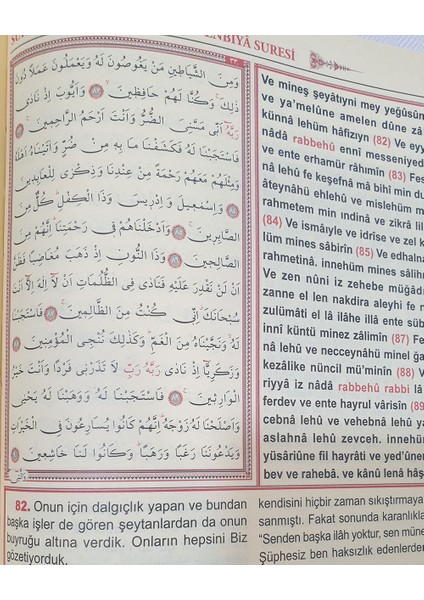 ENBİYÂ SURESİ
وَمِنَ الشَّيَاطِينِ مَنْ يَغُوصُونَ لَهُ وَيَعْمَلُونَ عَمَلًا دُونَ
ذٰلِكَ وَكُنَّا لَهُمْ حَافِظِينَ ﴿٨٢﴾ وَاَيُّوبَ اِذْ نَادٰى
رَبَّهُ اَنِّي مَسَّنِيَ الضُّرُّ وَاَنْتَ اَرْحَمُ الرَّاحِمِينَ ﴿٨٣﴾
فَاسْتَجَبْنَا لَهُ فَكَشَفْنَا مَا بِهِ مِنْ ضُرٍّ وَاٰتَيْنَاهُ اَهْلَهُ
وَمِثْلَهُمْ مَعَهُمْ رَحْمَةً مِنْ عِنْدِنَا وَذِكْرٰى لِلْعَابِدِينَ
﴿٨٤﴾ وَاِسْمٰعِيلَ وَاِدْرِيسَ وَذَا الْكِفْلِ كُلٌّ مِنَ
الصَّابِرِينَ ﴿٨٥﴾ وَاَدْخَلْنَاهُمْ فِي رَحْمَتِنَا اِنَّهُمْ مِنَ
الصَّالِحِينَ ﴿٨٦﴾ وَذَا النُّونِ اِذْ ذَهَبَ مُغَاضِبًا فَظَنَّ
اَنْ لَنْ نَقْدِرَ عَلَيْهِ فَنَادٰى فِي الظُّلُمَاتِ اَنْ لَا اِلٰهَ اِلَّا اَنْتَ
سُبْحَانَكَ اِنِّي كُنْتُ مِنَ الظَّالِمِينَ ﴿٨٧﴾ فَاسْتَجَبْنَا
لَهُ وَنَجَّيْنَاهُ مِنَ الْغَمِّ وَكَذٰلِكَ نُنْجِي الْمُؤْمِنِينَ ﴿٨٨﴾
وَزَكَرِيَّا اِذْ نَادٰى رَبَّهُ رَبِّ لَا تَذَرْنِي فَرْدًا وَاَنْتَ خَيْرُ
الْوَارِثِينَ ﴿٨٩﴾ فَاسْتَجَبْنَا لَهُ وَوَهَبْنَا لَهُ يَحْيٰى
وَاَصْلَحْنَا لَهُ زَوْجَهُ اِنَّهُمْ كَانُوا يُسَارِعُونَ فِي الْخَيْرَاتِ
وَيَدْعُونَنَا رَغَبًا وَرَهَبًا وَكَانُوا لَنَا خَاشِعِينَ
Ve mineş şeyâtıyni mey yeğûsûn
ve ya'melûne amelen dûne zâ
künnâ lehüm hâfızîyn (82) Ve eyy
nâdâ rabbehû ennî messeniyed
ve ente erhamür râhımîn (83) Fes
nâ lehû fe keşefnâ mâ bihî min du
âteynâhü ehlehû ve mislehüm m
rahmetem min ındinâ ve zikrâ lil
(84) Ve ismâıyle ve idrîse ve zel k
lüm mines sâbirîn (85) Ve edhalnâ
rahmetinâ. innehüm mines sâlihı
Ve zen nûni iz zehebe müğâdı
zanne el len nakdira aleyhi fe n
zulümâti el lâ ilâhe illâ ente süb
innî küntü minez zâlimîn (87) Fes
nâ lehû ve necceynâhü minel ğa
kezâlike nüncil mü'minîn (88) Ve
riyyâ iz nâdâ rabbehû rabbi lâ
ferdev ve ente hayrul vârisîn (89
cebnâ lehû ve vehebnâ lehû ya
aslahnâ lehû zevceh. innehüm
yüsâriûne fil hayrâti ve yed'ûnen
bev ve rahebâ. ve kânû lenâ hâş
82. Onun için dalgıçlık yapan ve bundan
başka işler de gören şeytanlardan da onun
buyruğu altına verdik. Onların hepsini Biz
gözetiyorduk.
kendisini hiçbir zaman sıkıştırmaya
sanmıştı. Fakat sonunda karanlıkla
"Senden başka ilâh yoktur, sen müne
Şüphesiz ben haksızlık edenlerden